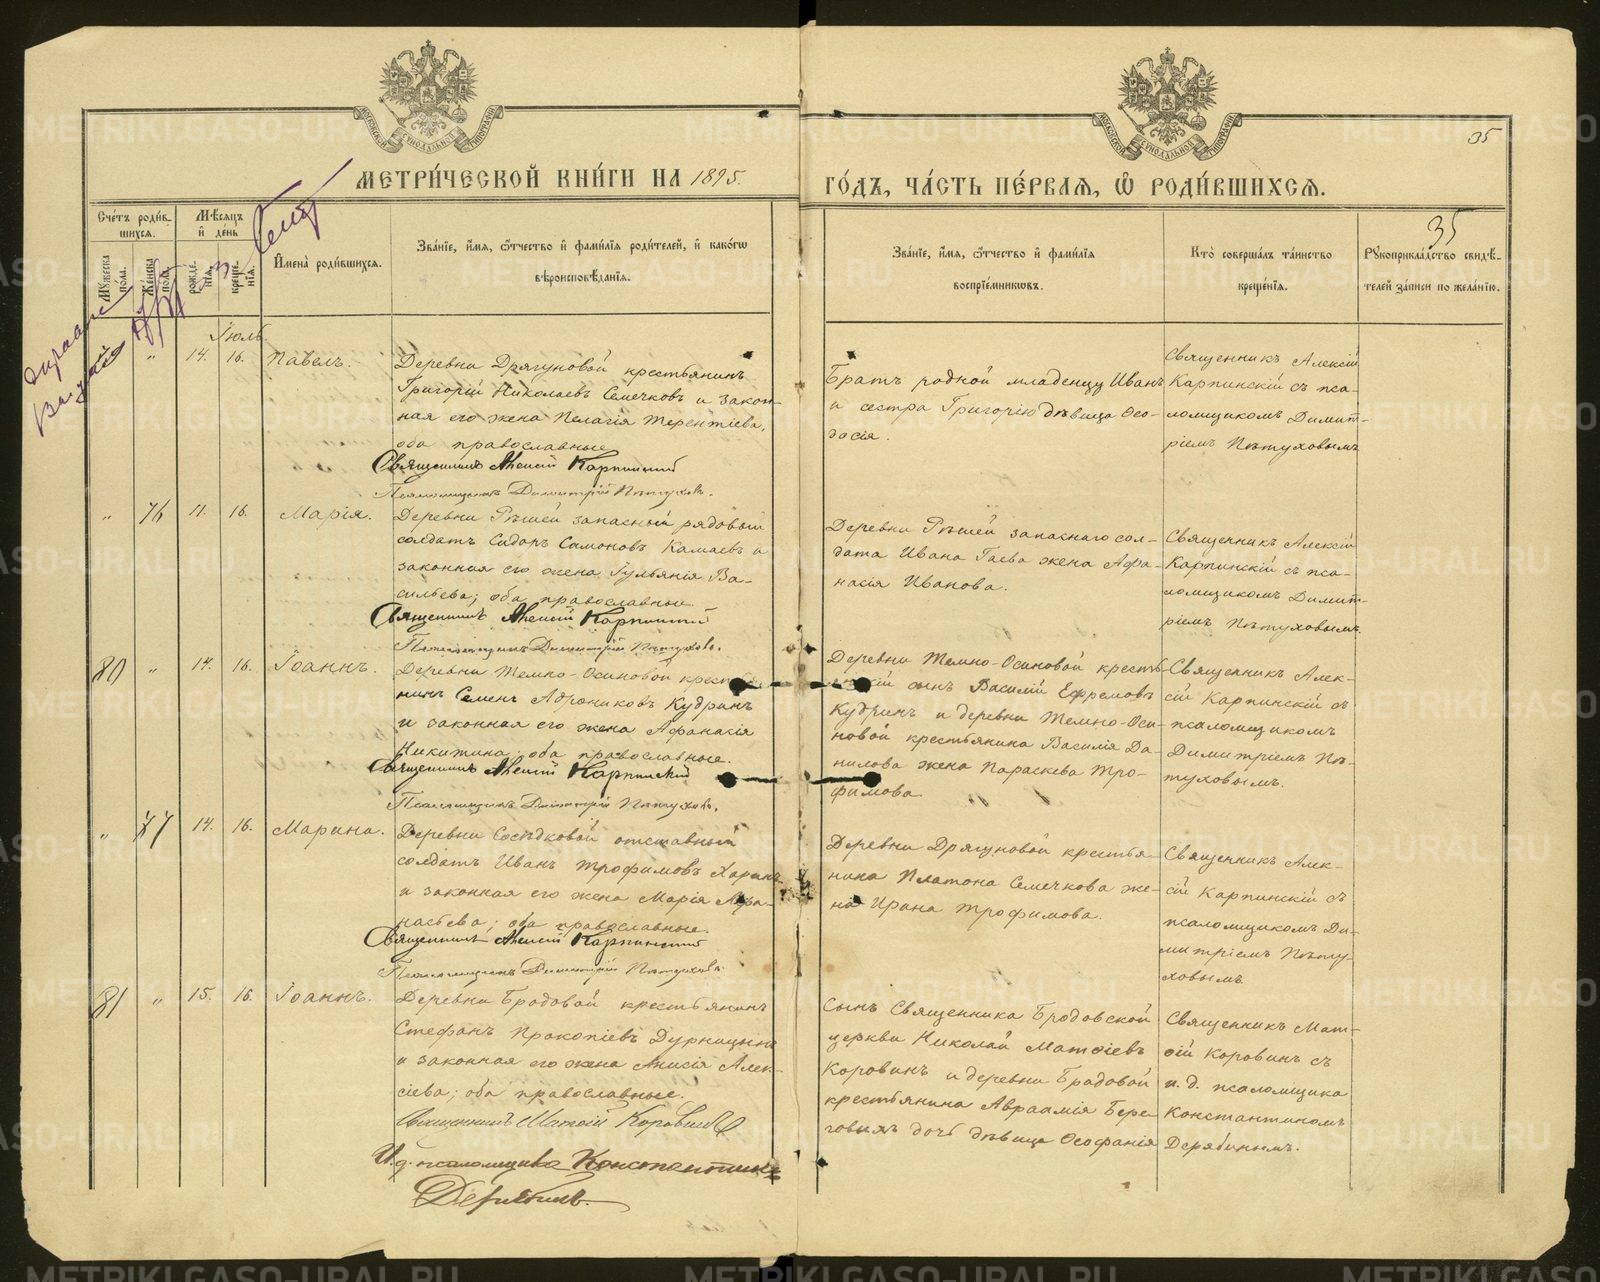 МЕТРИ́ЧЕСКОЙ КНИ́ГИ НА 1895.
ГО́ДЪ, ЧА́СТЬ ПЕ́РВАЯ, Ѡ҆ РОДИ́ВШИХСЯ.
35
35
Сче́тъ роди́в-
шихся.
Му́жеска по́ла.
Же́нска по́ла.
Мѣ́сяцъ
и҆ де́нь
рожде́-
нія.
креще́-
нія.
И҆мена̀ роди́вшихся.
Зва́ніе, и҆́мя, ѻ҆́тчество и҆ фами́лія роди́телей, и҆ како́гѡ
вѣроисповѣ́данія.
Зва́ніе, и҆́мя, ѻ҆́тчество и҆ фами́лія
воспріе́мникѡвъ.
Кто̀ соверша́лъ та́инство
креще́нія.
Рꙋкоприкла́дство свидѣ́-
телей за́писи по жела́нію.
Іюль
„ 14. 16. Павелъ.
Деревни Дрягуновой крестьянинъ
Григорій Николаевъ Семечковъ и закон-
ная его жена Пелагія Терентіева,
оба православные
Священникъ Алексій Карпинскій
Псаломщикъ Димитрій Пѣтуховъ.
Братъ родной младенцу Иванъ
и сестра Григорію дѣвица Ѳео-
досія.
Священникъ Алексій
Карпинскій съ пса-
ломщикомъ Димит-
ріемъ Пѣтуховымъ
„ 76 11. 16. Марія.
Деревни Рѣшей запасный рядовый
солдатъ Сидоръ Самоновъ Камаевъ и
законная его жена Іульянія Ва-
сильева; оба православные.
Священникъ Алексій Карпинскій
Псаломщикъ Димитрій Пѣтуховъ.
Деревни Рѣшей запаснаго сол-
дата Ивана Гаева жена Афа-
насія Иванова.
Священникъ Алексій
Карпинскій съ пса-
ломщикомъ Димит-
ріемъ Пѣтуховымъ.
80 „ 14. 16. Іоаннъ.
Деревни Темно-Осиновой крестья-
нинъ Семенъ Адрониковъ Кудринъ
и законная его жена Афанасія
Никитина; оба православные.
Священникъ Алексій Карпинскій
Псаломщикъ Димитрій Пѣтуховъ.
Деревни Темно-Осиновой кресть-
янскій сынъ Василій Ефремовъ
Кудринъ и деревни Темно-Оси-
новой крестьянина Василія Да-
нилова жена Параскева Тро-
фимова.
Священникъ Алек-
сій Карпинскій съ
псаломщикомъ
Димитріемъ Пѣ-
туховымъ.
„ 77 14. 16. Марина.
Деревни Сосѣдковой отставный
солдатъ Иванъ Трофимовъ Харинъ
и законная его жена Марія Афа-
насьева; оба православные.
Священникъ Алексій Карпинскій
Псаломщикъ Димитрій Пѣтуховъ
Деревни Дрягуновой крестья-
нина Платона Семечкова же-
на Ирина Трофимова.
Священникъ Алек-
сій Карпинскій съ
псаломщикомъ Ди-
митріемъ Пѣту-
ховымъ.
81 „ 15. 16. Іоаннъ.
Деревни Бродовой крестьянинъ
Стефанъ Прокопіевъ Дурницынъ
и законная его жена Анисія Алек-
сіева; оба православные.
Священникъ Матѳій Коровинъ
И. д. псаломщика Константинъ
Дерябинъ.
Сынъ Священника Бродовской
церкви Николай Матѳіевъ
Коровинъ и деревни Бродовой
крестьянина Авраамія Бере-
говыхъ дочь дѣвица Ѳеофанія
Священникъ Мат-
ѳій Коровинъ съ
и. д. псаломщика
Константиномъ
Дерябинымъ.
METRIKI.GASO-URAL.RU